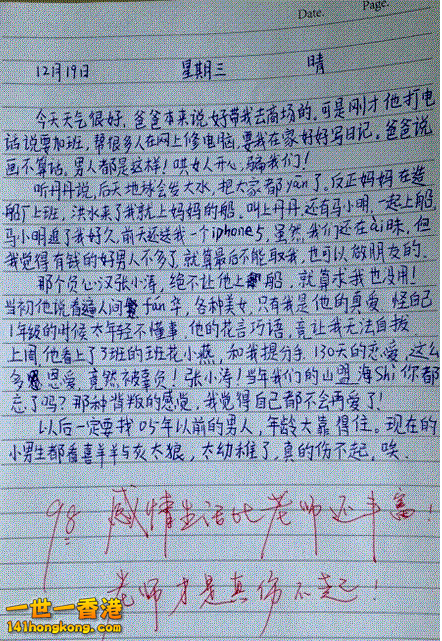 Date.
Page.
12月19日 星期三 晴
今天天气很好，爸爸本来说好带我去商场的，可是刚才他打电
话说要加班，帮很多人在网上修电脑，要我在家好好写日记。爸爸说
画不算话，男人都是这样！哄女人开心，骗我们！
听丹丹说，后天地球会发大水，把大家都yān了，反正妈妈在造
船厂上班，洪水来了我就上妈妈的船，叫上丹丹，还有马小明，一起上船，
马小明追了我好久，前天还送我一个iphone5，虽然我们还在ài昧，但
我觉得有钱的好男人不多了，就算最后不能取我，也可以做朋友的。
那个负心汉张小涛，绝不让他上船，就算求我也没用！
当初他说看遍人间fán华，各种美女，只有我是他的真爱，怪自己
1年级的时候太年轻不懂事，他的花言巧语，竟让我无法自拔
上周他看上了3班的班花小燕，和我提分手，130天的恋爱，这么
多恩爱，竟然被辜负！张小涛！当年我们的山盟海Shi你都
忘了吗？那种背叛的感觉，我觉得自己都不会再爱了！
以后一定要找05年以前的男人，年龄大靠得住。现在的
小男生都看喜羊羊与灰太狼，太幼稚了，真的伤不起，唉.
98 感情生活比老师还丰富！
老师才是真伤不起！
一世一香港
141hongkong.com